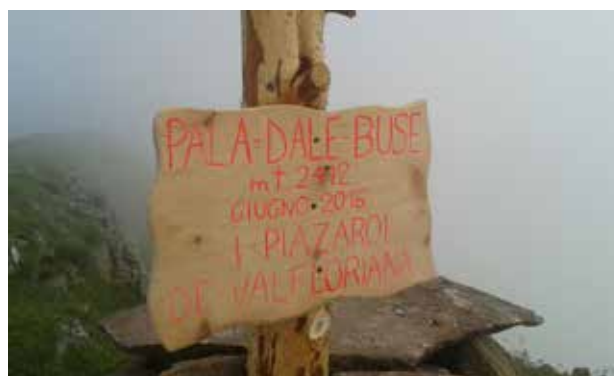 PALA=DALE=BUSE
mt 2412
GIUGNO 2016
I PIAZAROI
DE VALFLORIANA